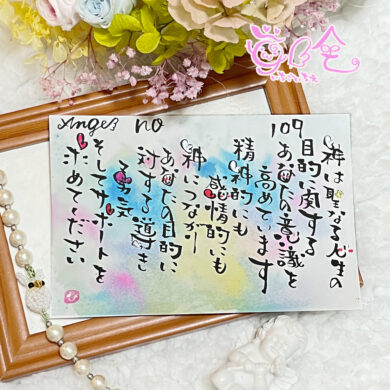 Angel no 109
神は聖なる人生の
目的に関する
あなたの意識を
高めています
精神的にも
感情的にも
神につながり
あなたの目的に
対する導き
勇気
そしてサポートを
求めてください